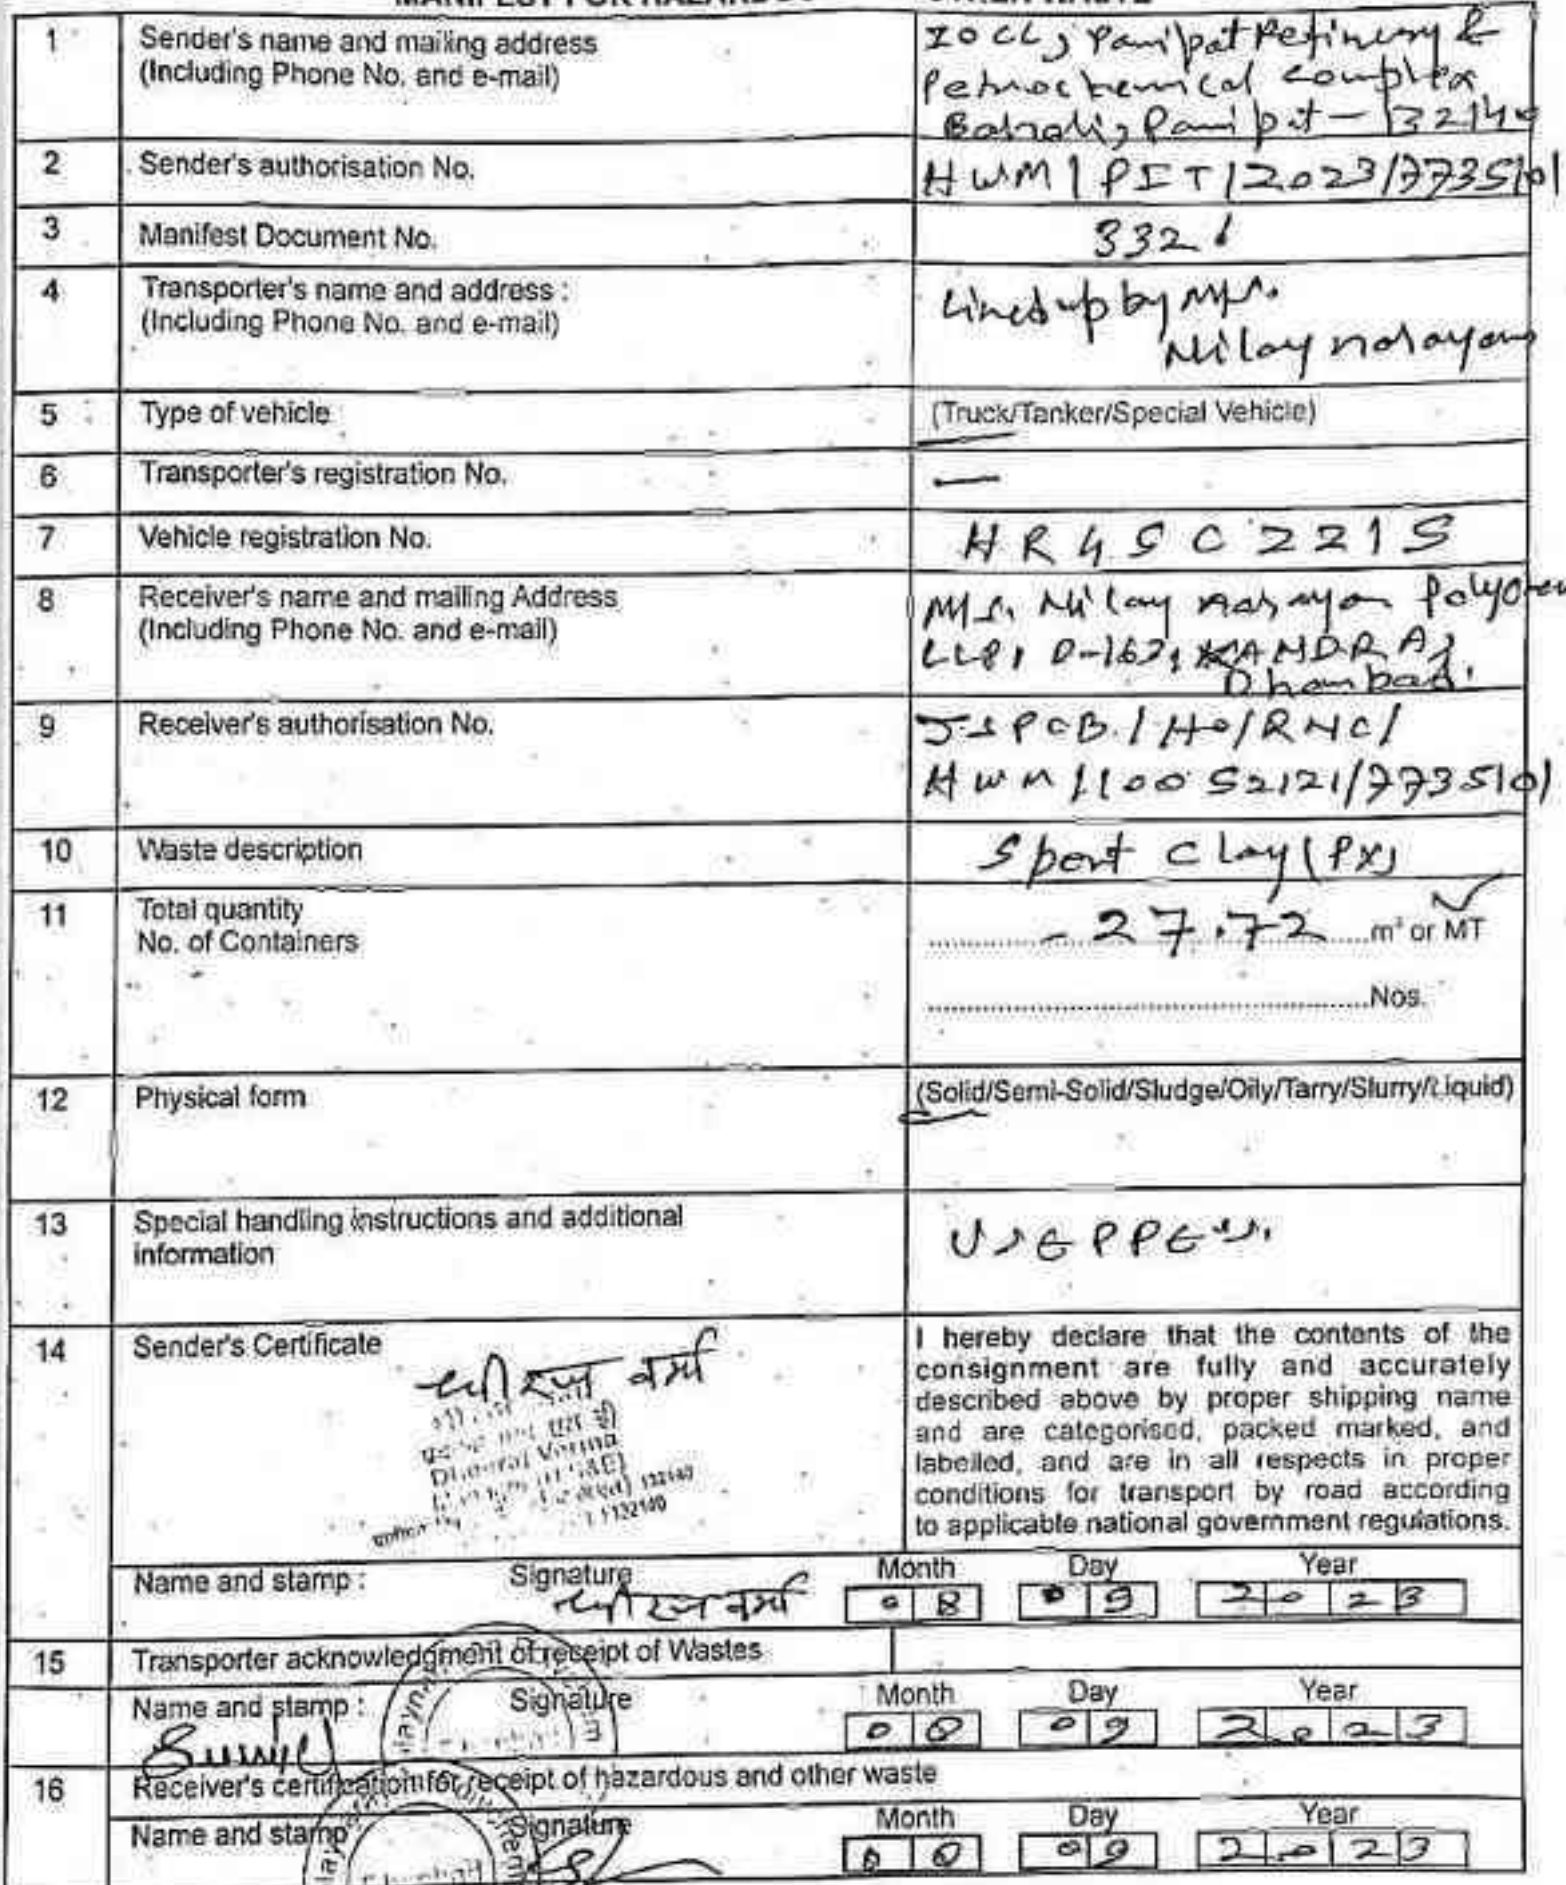 1 Sender's name and mailing address
(Including Phone No. and e-mail)
IOCL, Panipat Refinery &
Petrochemical Complex
Baholi, Panipat - 13214
2 Sender's authorisation No.
HWM/PIT/2023/7735101
3 Manifest Document No.
3321
4 Transporter's name and address :
(Including Phone No. and e-mail)
Lined up by M/s.
Nilay narayan
5 Type of vehicle
(Truck/Tanker/Special Vehicle)
6 Transporter's registration No.
—
7 Vehicle registration No.
HR45C2215
8 Receiver's name and mailing Address
(Including Phone No. and e-mail)
M/s. Nilay Narayan
LLP, D-167, KANDRA,
Dhanbad.
9 Receiver's authorisation No.
JSPCB/HO/RNC/
HWM/10052121/7735101
10 Waste description
Spent Clay (PX)
11 Total quantity
No. of Containers
27.72 m³ or MT
Nos.
12 Physical form
(Solid/Semi-Solid/Sludge/Oily/Tarry/Slurry/Liquid)
13 Special handling instructions and additional
information
USE PPE's.
14 Sender's Certificate
धीरज वर्मा
Dheeraj Verma
132140
I hereby declare that the contents of the
consignment are fully and accurately
described above by proper shipping name
and are categorised, packed marked, and
labelled, and are in all respects in proper
conditions for transport by road according
to applicable national government regulations.
Name and stamp : Signature Month Day Year
धीरज वर्मा 08 09 2023
15 Transporter acknowledgment of receipt of Wastes
Name and stamp : Signature Month Day Year
Sunil 08 09 2023
16 Receiver's certification for receipt of hazardous and other waste
Name and stamp Signature Month Day Year
08 09 2023